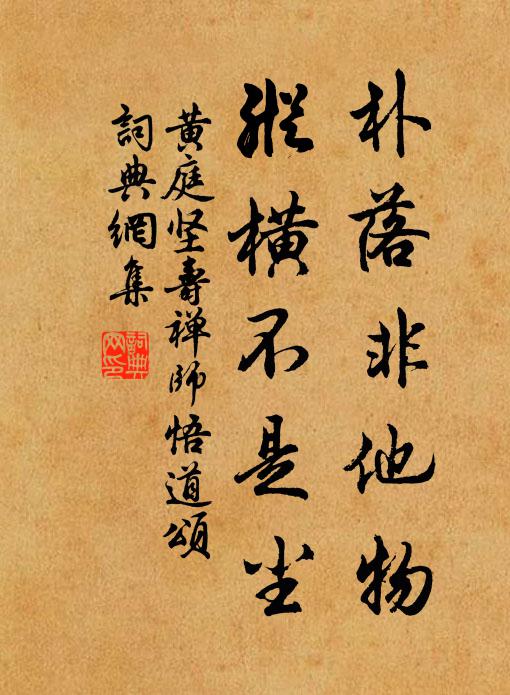 朴落非他物
縱橫不是尘
黄庭坚壽禅師悟道頌
詞典網集
詞典
网印